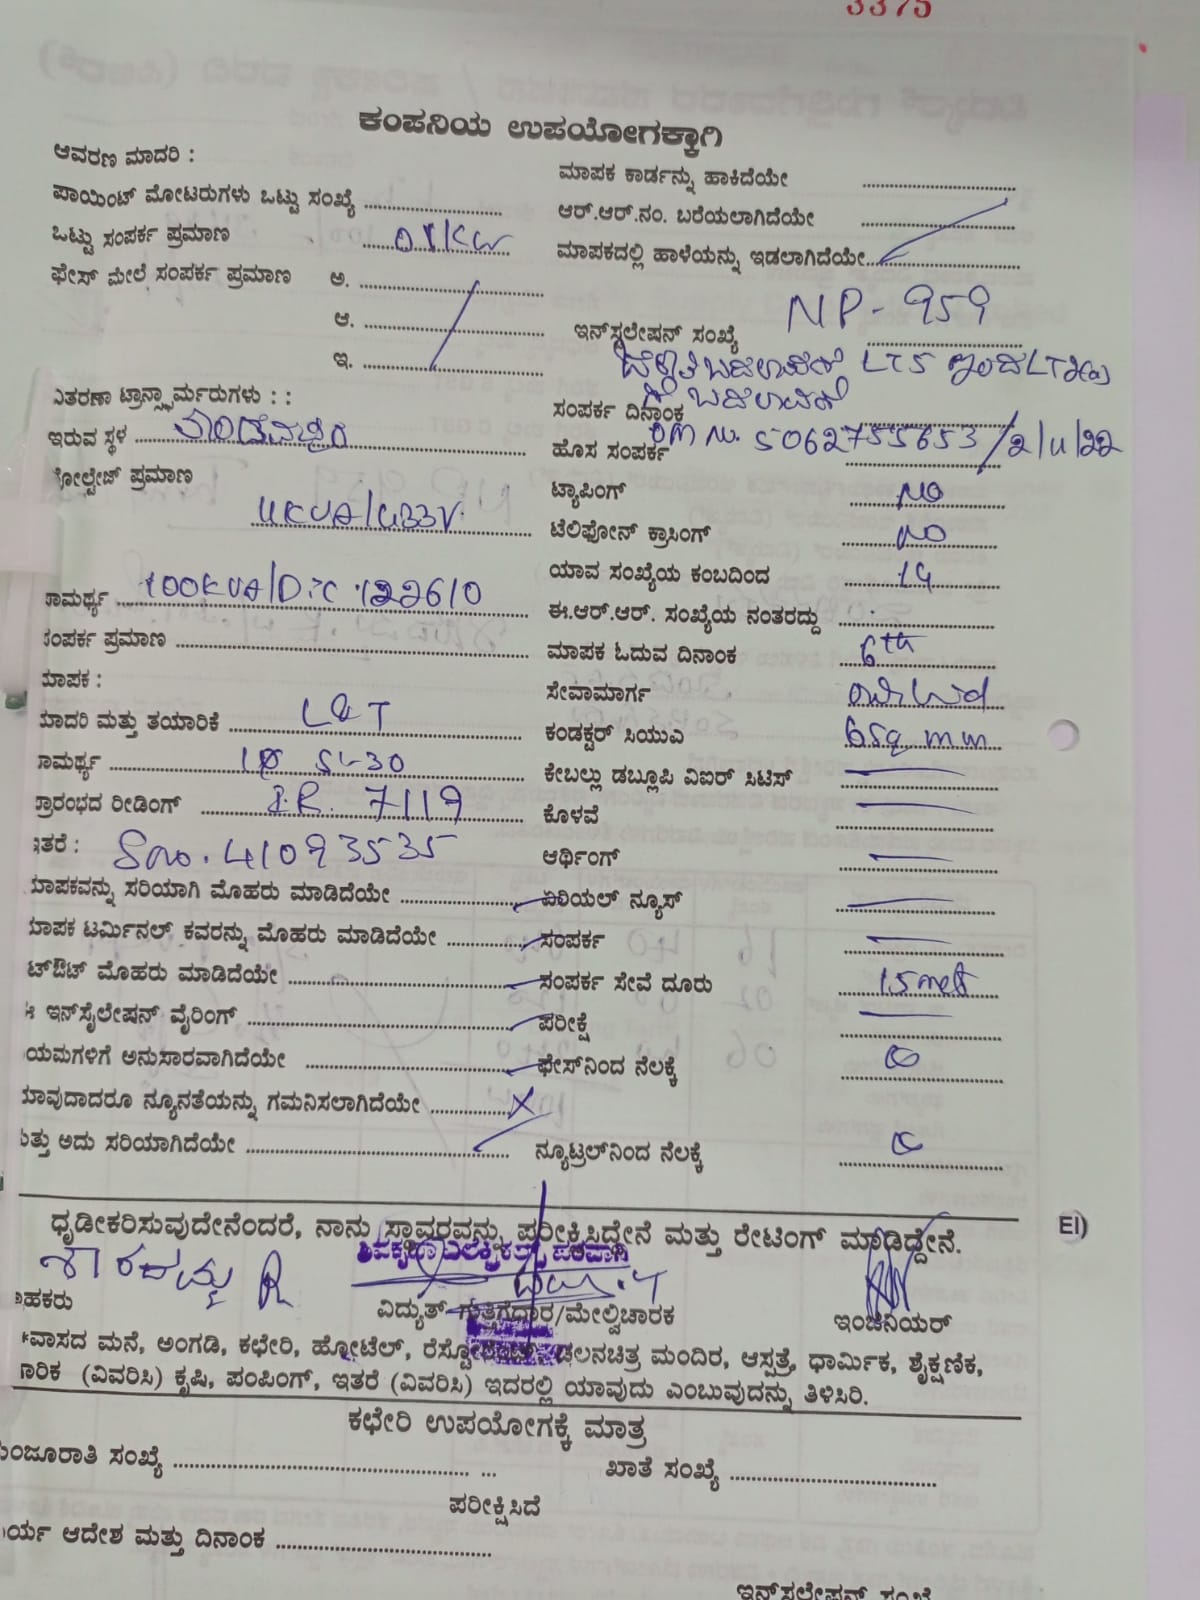 3375
ಕಂಪನಿಯ ಉಪಯೋಗಕ್ಕಾಗಿ
ಆವರಣ ಮಾದರಿ :
ಮಾಪಕ ಕಾರ್ಡನ್ನು ಹಾಕಿದೆಯೇ
ಪಾಯಿಂಟ್ ಮೋಟರುಗಳು ಒಟ್ಟು ಸಂಖ್ಯೆ
ಆರ್.ಆರ್.ನಂ. ಬರೆಯಲಾಗಿದೆಯೇ
ಒಟ್ಟು ಸಂಪರ್ಕ ಪ್ರಮಾಣ
ಮಾಪಕದಲ್ಲಿ ಹಾಳೆಯನ್ನು ಇಡಲಾಗಿದೆಯೇ
ಫೇಸ್ ಮೇಲೆ ಸಂಪರ್ಕ ಪ್ರಮಾಣ ಅ.
ಆ.
ಇನ್‌ಸ್ಟಲೇಷನ್ ಸಂಖ್ಯೆ NP-959
ಇ.
ವಿತರಣಾ ಟ್ರಾನ್ಸ್ಫಾರ್ಮರುಗಳು : :
ಸಂಪರ್ಕ ದಿನಾಂಕ
ಇರುವ ಸ್ಥಳ
ಹೊಸ ಸಂಪರ್ಕ 5062755653/2/11/22
ವೋಲ್ಟೇಜ್ ಪ್ರಮಾಣ
ಟ್ಯಾಪಿಂಗ್ NO
11KVA/433V
ಟೆಲಿಫೋನ್ ಕ್ರಾಸಿಂಗ್ NO
ಯಾವ ಸಂಖ್ಯೆಯ ಕಂಬದಿಂದ 14
ಸಾಮರ್ಥ್ಯ 100KVA/DTC 122610
ಈ.ಆರ್.ಆರ್. ಸಂಖ್ಯೆಯ ನಂತರದ್ದು
ಸಂಪರ್ಕ ಪ್ರಮಾಣ
ಮಾಪಕ ಓದುವ ದಿನಾಂಕ 6th
ಮಾಪಕ :
ಸೇವಾಮಾರ್ಗ
ಮಾದರಿ ಮತ್ತು ತಯಾರಿಕೆ L&T
ಕಂಡಕ್ಟರ್ ಸಿಯುಎ 6sq mm
ಸಾಮರ್ಥ್ಯ 1Ø 5-30
ಕೇಬಲ್ಲು ಡಬ್ಲೂಪಿ ವಿಐರ್ ಸಿಟಿಸ್
ಪ್ರಾರಂಭದ ರೀಡಿಂಗ್ I.R. 7119
ಕೊಳವೆ
ಇತರೆ : Sno. 41093535
ಆರ್ಥಿಂಗ್
ಮಾಪಕವನ್ನು ಸರಿಯಾಗಿ ಮೊಹರು ಮಾಡಿದೆಯೇ
ಏರಿಯಲ್ ನ್ಯೂಸ್
ಮಾಪಕ ಟರ್ಮಿನಲ್ ಕವರನ್ನು ಮೊಹರು ಮಾಡಿದೆಯೇ
ಸಂಪರ್ಕ
ಕಟ್‌ಔಟ್ ಮೊಹರು ಮಾಡಿದೆಯೇ
ಸಂಪರ್ಕ ಸೇವೆ ದೂರು
ಇನ್‌ಸ್ಟೆಲೇಷನ್ ವೈರಿಂಗ್
ಪರೀಕ್ಷೆ
ನಿಯಮಗಳಿಗೆ ಅನುಸಾರವಾಗಿದೆಯೇ
ಫೇಸ್‌ನಿಂದ ನೆಲಕ್ಕೆ
ಯಾವುದಾದರೂ ನ್ಯೂನತೆಯನ್ನು ಗಮನಿಸಲಾಗಿದೆಯೇ
ಮತ್ತು ಅದು ಸರಿಯಾಗಿದೆಯೇ
ನ್ಯೂಟ್ರಲ್‌ನಿಂದ ನೆಲಕ್ಕೆ
ಧೃಡೀಕರಿಸುವುದೇನೆಂದರೆ, ನಾನು ಸ್ಥಾವರವನ್ನು ಪರೀಕ್ಷಿಸಿದ್ದೇನೆ ಮತ್ತು ರೇಟಿಂಗ್ ಮಾಡಿದ್ದೇನೆ.
EI)
ಗ್ರಾಹಕರು
ವಿದ್ಯುತ್ ಗುತ್ತಿಗೆದಾರ/ಮೇಲ್ವಿಚಾರಕ
ಇಂಜಿನಿಯರ್
ವಾಸದ ಮನೆ, ಅಂಗಡಿ, ಕಛೇರಿ, ಹೋಟೆಲ್, ಚಲನಚಿತ್ರ ಮಂದಿರ, ಆಸ್ಪತ್ರೆ, ಧಾರ್ಮಿಕ, ಶೈಕ್ಷಣಿಕ,
(ವಿವರಿಸಿ) ಕೃಷಿ, ಪಂಪಿಂಗ್, ಇತರೆ (ವಿವರಿಸಿ) ಇದರಲ್ಲಿ ಯಾವುದು ಎಂಬುವುದನ್ನು ತಿಳಿಸಿರಿ.
ಕಛೇರಿ ಉಪಯೋಗಕ್ಕೆ ಮಾತ್ರ
ಮಂಜೂರಾತಿ ಸಂಖ್ಯೆ
ಖಾತೆ ಸಂಖ್ಯೆ
ಪರೀಕ್ಷಿಸಿದೆ
ಕಾರ್ಯ ಆದೇಶ ಮತ್ತು ದಿನಾಂಕ
ಇನ್‌ಸ್ಟಲೇಷನ್ ಸಂಖ್ಯೆ